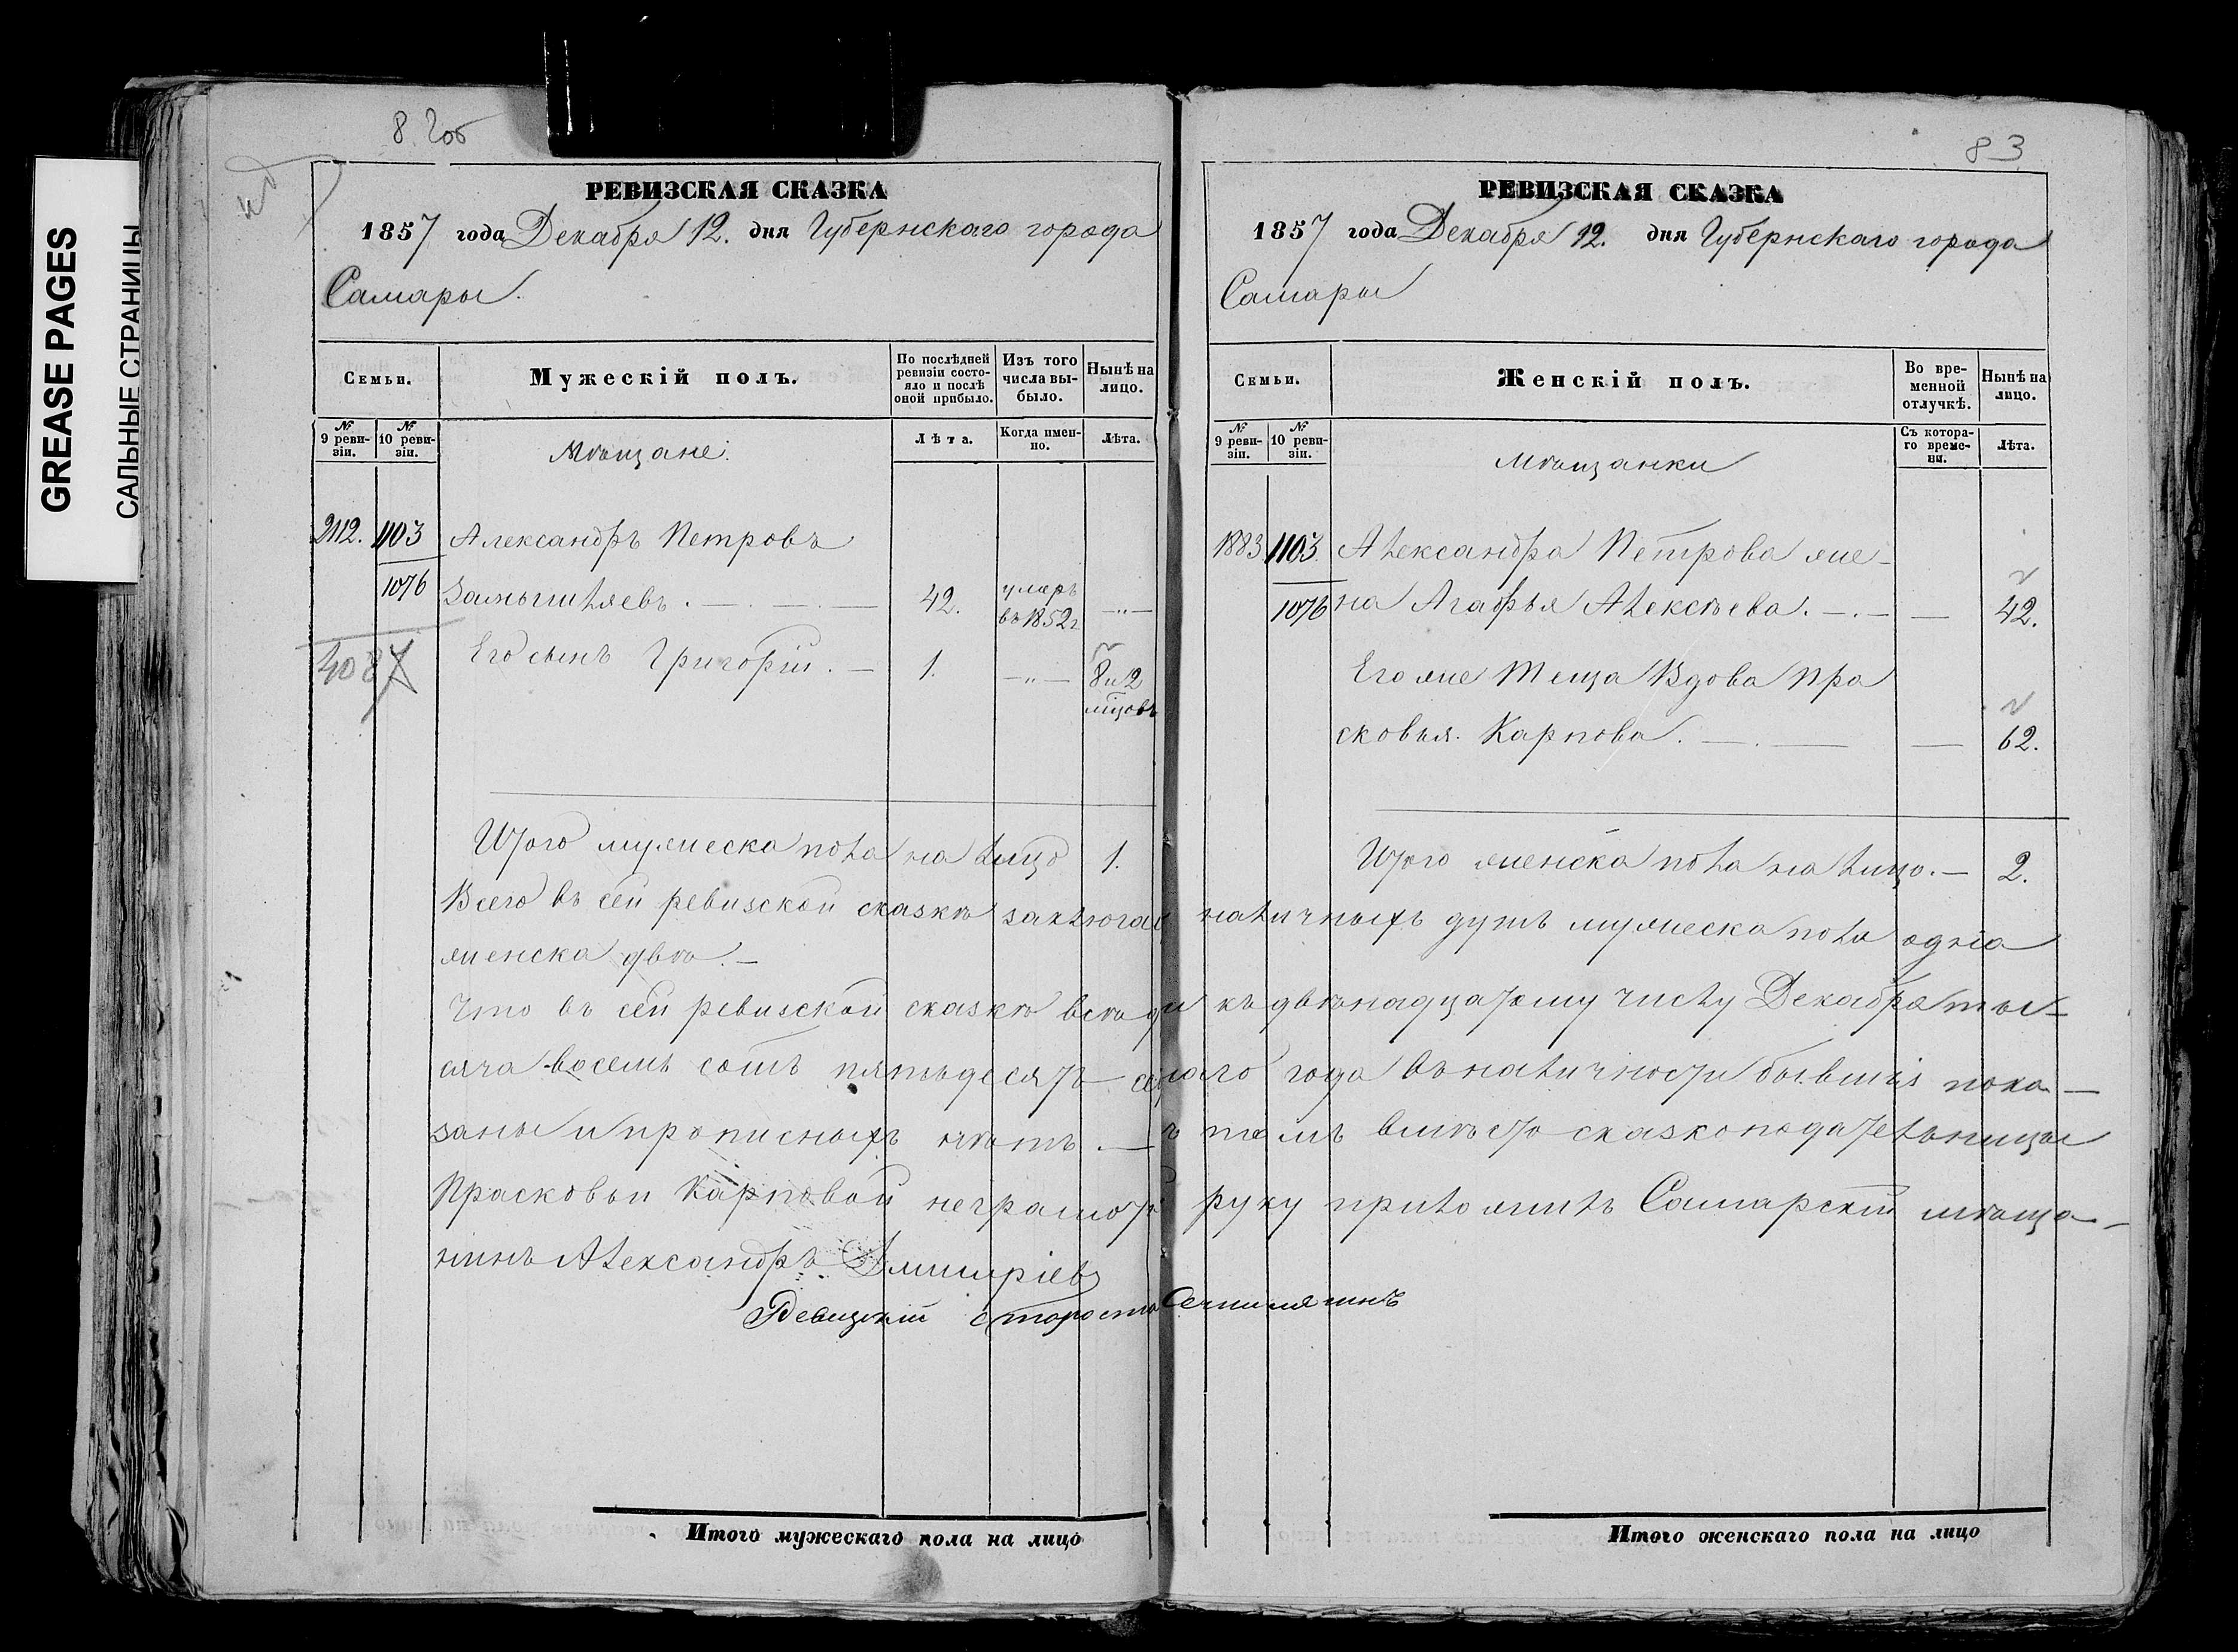 GREASE PAGES
САЛЬНЫЕ СТРАНИЦЫ
82об
РЕВИЗСКАЯ СКАЗКА
1857 года Декабря 12. дня Губернскаго города
Самары.
Семьи.
Мужескій полъ.
По послѣдней ревизіи состояло и послѣ оной прибыло.
Изъ того числа выбыло.
Нынѣ на лицо.
№ 9 ревизіи.
№ 10 ревизіи.
Мѣщане.
Лѣта.
Когда именно.
Лѣта.
2112. 1103 Александръ Петровъ
1076 Замышляевъ. 42. умеръ въ 1852 г. —„—
Его сынъ Григорій. — 1. —„— 8 и 2 мѣсяцовъ
4087
Итого мужеска пола на лицо 1.
83
РЕВИЗСКАЯ СКАЗКА
1857 года Декабря 12. дня Губернскаго города
Самары
Семьи.
Женскій полъ.
Во временной отлучкѣ.
Нынѣ на лицо.
№ 9 ревизіи.
№ 10 ревизіи.
Мѣщанки
Съ котораго времени.
Лѣта.
1883 1103 Александра Петрова же-
1076 на Агафья Алексѣева. — 42.
Его же теща вдова Пра
сковья Карпова. — 62.
Итого женска пола на лицо. — 2.
Всего въ сей ревизской сказкѣ заключая наличныхъ душъ мужеска пола одна
женска двѣ. —
Что въ сей ревизской сказкѣ всѣ къ двѣнадцатому числу Декабря ты-
сяча восемь сотъ пятьдесятъ года въ наличности бывшія пока-
заны и прописныхъ нѣтъ. — въ томъ вмѣсто сказкоподательницы
Прасковьи Карповой неграмот руку приложилъ Самарскій мѣща-
нинъ Александръ Дмитріевъ
Ревизскій староста
Итого мужескаго пола на лицо
Итого женскаго пола на лицо